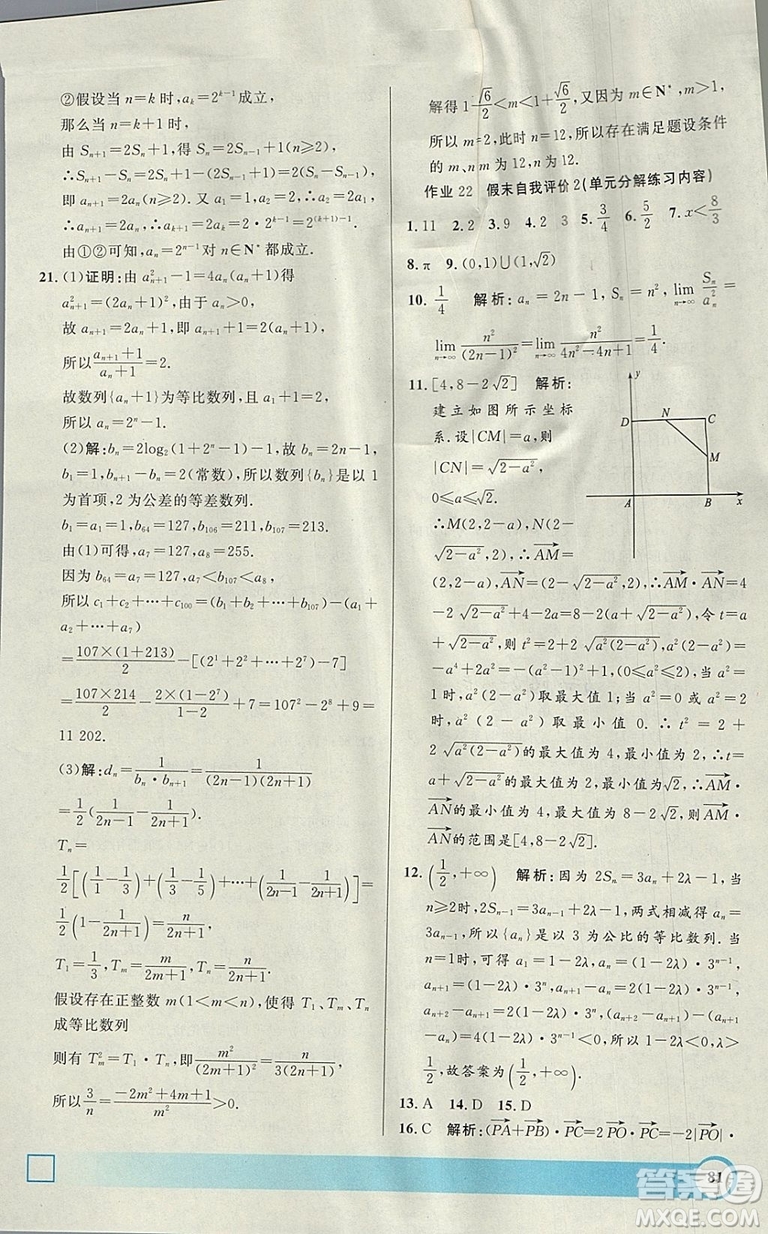 ②假设当 n=k 时,aₖ=2ᵏ⁻¹成立,
那么当 n=k+1 时,
由 Sₙ₊₁=2Sₙ+1,Sₙ=2Sₙ₋₁+1(n≥2).
∴Sₙ₊₁-Sₙ=(2Sₙ+1)-(2Sₙ₋₁+1),
即 aₙ₊₁=2aₙ(n≥2). 又 a₁=1,a₂=2,∴a₂=2a₁.
∴aₙ₊₁=2aₙ,∴aₖ₊₁=2aₖ=2·2ᵏ⁻¹=2⁽ᵏ⁺¹⁾⁻¹.
由①②可知,aₙ=2ⁿ⁻¹对 n∈N*都成立.
21. (1)证明:由 a²ₙ₊₁-1=4aₙ(aₙ+1)得
a²ₙ₊₁=(2aₙ+1)²,由于 aₙ>0,
故 aₙ₊₁=2aₙ+1,即 aₙ₊₁+1=2(aₙ+1),
所以(aₙ₊₁+1)/(aₙ+1)=2.
故数列{aₙ+1}为等比数列,且 a₁+1=2,
所以 aₙ=2ⁿ-1.
(2)解:bₙ=2log₂(2ⁿ-1+1)-1,故 bₙ=2n-1,
b₁=1,bₙ₊₁-bₙ=2(常数),所以数列{bₙ}是以 1
为首项,2 为公差的等差数列.
b₁=a₁=1,b₆₄=127,b₁₀₆=211,b₁₀₇=213.
由(1)可得,a₇=127,a₈=255.
因为 b₆₄=a₇=127,a₇<b₁₀₇<a₈,
所以 c₁+c₂+⋯+c₁₀₀=(b₁+b₂+⋯+b₁₀₇)-(a₁+
a₂+⋯+a₇)
=107×(1+213)/2-[(2¹+2²+⋯+2⁷)-7]
=107×214/2-2(1-2⁷)/(1-2)+7=107²-2⁸+9=
11 202.
(3)解:dₙ=1/(bₙ·bₙ₊₁)=1/((2n-1)(2n+1))
=1/2(1/(2n-1)-1/(2n+1)).
Tₙ=
1/2[(1/1-1/3)+(1/3-1/5)+⋯+(1/(2n-1)-1/(2n+1))]=
1/2(1-1/(2n+1))=n/(2n+1).
T₁=1/3,Tₘ=m/(2m+1),Tₙ=n/(2n+1).
假设存在正整数 m(1<m<n),使得 T₁、Tₘ、Tₙ
成等比数列
则有 T²ₘ=T₁·Tₙ,即m²/(2m+1)²=n/(3(2n+1)),
所以3/n=(-2m²+4m+1)/m²>0.
解得 1-√6/2<m<1+√6/2,又因为 m∈N*,m>1,
所以 m=2,此时 n=12,所以存在满足题设条件
的 m、n,m 为 12,n 为 12.
作业 22 假末自我评价 2(单元分解练习内容)
1. 11 2. 2 3. 9 4. 2 3 5. 3/4 6. 5/2 7. x<8/3
8. π 9. (0,1)∪(1,√2)
10. 1/4 解析:aₙ=2n-1,Sₙ=n²,lim(n→∞) Sₙ/a²ₙ=
lim(n→∞) n²/(2n-1)²=lim(n→∞) n²/(4n²-4n+1)=1/4.
11. [4,8-2√2] 解析:
建立如图所示坐标
系.设|CM|=a,则
|CN|=√(2-a²),
0≤a≤√2.
∴M(2,2-a),N(2-
√(2-a²),2),∴AM=
(2,2-a),AN=(2-√(2-a²),2),∴AM·AN=4
-2√(2-a²)+4-2a=8-2(a+√(2-a²)),令 t=
a+√(2-a²),则 t²=2+2√(a²(2-a²)),a²(2-a²)=
-a⁴+2a²=-(a²-1)²+1,(0≤a≤√2),当 a=
1 时,a²(2-a²)取最大值 1;当 a²=0 或 a²=2
时,a²(2-a²)取最小值 0.∴t²=2+
2√(a²(2-a²))的最大值为 4,最小值为 2,∴t=
a+√(2-a²)的最大值为 2,最小值为√2,∴AM·
AN的最小值为 4,最大值为 8-2√2,故AM·
AN的范围是[4,8-2√2].
y
D
N
C
M
A
B
x
12. (1/2,+∞) 解析:因为 2Sₙ=3aₙ+2λ-1,当
n≥2 时,2Sₙ₋₁=3aₙ₋₁+2λ-1,两式相减得 aₙ=
3aₙ₋₁,所以{aₙ}是以 3 为公比的等比数列.当
n=1 时,可得 a₁=1-2λ,∴aₙ=(1-2λ)·3ⁿ⁻¹,
aₙ₊₁=(1-2λ)·3ⁿ,∴aₙ+aₙ₊₁=(1-2λ)·3ⁿ⁻¹
+(1-2λ)·3ⁿ=4(1-2λ)·3ⁿ⁻¹,(aₙ₊₁+
aₙ₊₂)-(aₙ+aₙ₊₁)=4(1-2λ)·3ⁿ-4(1-2λ)·
3ⁿ⁻¹=4(1-2λ)·3ⁿ⁻¹·2<0,所以 1-2λ<0,λ>
1/2,故答案为(1/2,+∞).
13. A 14. D 15. D
16. C 解析:(PA+PB)·PC=2PO·PC=-2|PO|·
81
答案圈
MXQE.COM